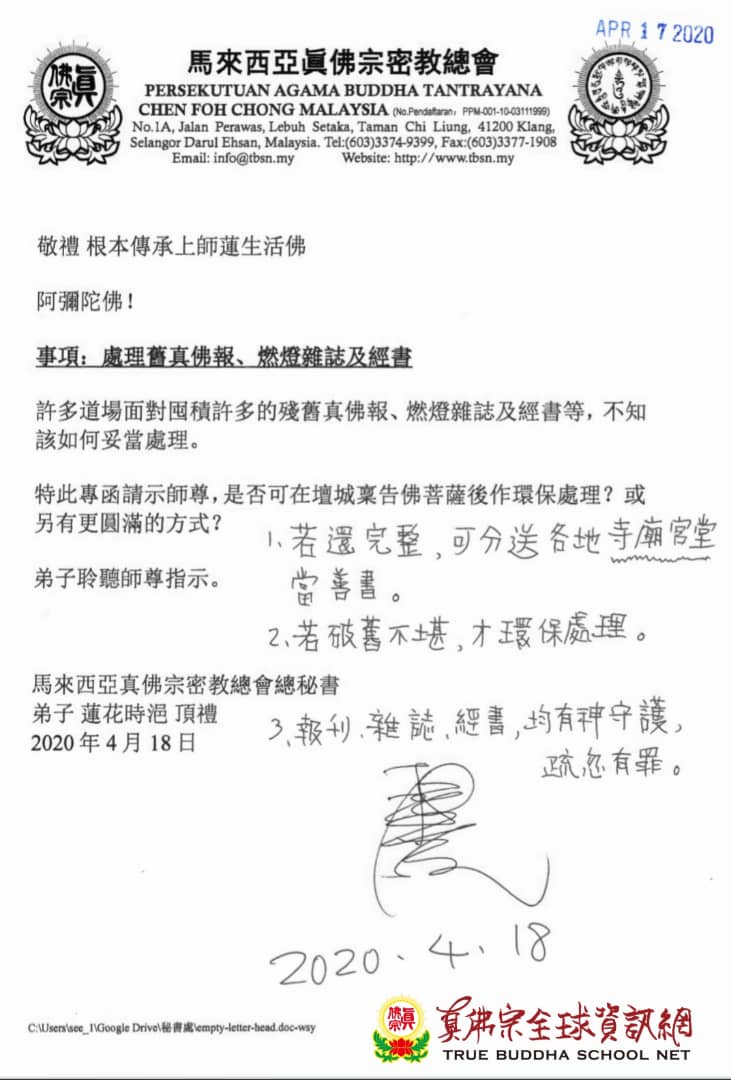 APR 17 2020
馬來西亞眞佛宗密教總會
PERSEKUTUAN AGAMA BUDDHA TANTRAYANA
CHEN FOH CHONG MALAYSIA (No.Pendaftaran: PPM-001-10-03111999)
No.1A, Jalan Perawas, Lebuh Setaka, Taman Chi Liung, 41200 Klang,
Selangor Darul Ehsan, Malaysia. Tel:(603)3374-9399, Fax:(603)3377-1908
Email: info@tbsn.my Website: http://www.tbsn.my
眞佛宗
敬禮 根本傳承上師蓮生活佛
阿彌陀佛！
事項：處理舊真佛報、燃燈雜誌及經書
許多道場面對囤積許多的殘舊真佛報、燃燈雜誌及經書等，不知
該如何妥當處理。
特此專函請示師尊，是否可在壇城稟告佛菩薩後作環保處理？或
另有更圓滿的方式？
弟子聆聽師尊指示。
1、若還完整，可分送各地寺廟宮堂
當善書。
2、若破舊不堪，才環保處理。
馬來西亞真佛宗密教總會總秘書
弟子 蓮花時浥 頂禮
2020 年 4 月 18 日
3、報刊、雜誌、經書，均有神守護，
疏忽有罪。
2020.4.18
C:\Users\see_1\Google Drive\秘書處\empty-letter-head.doc-wsy
眞佛宗
真佛宗全球資訊網
TRUE BUDDHA SCHOOL NET